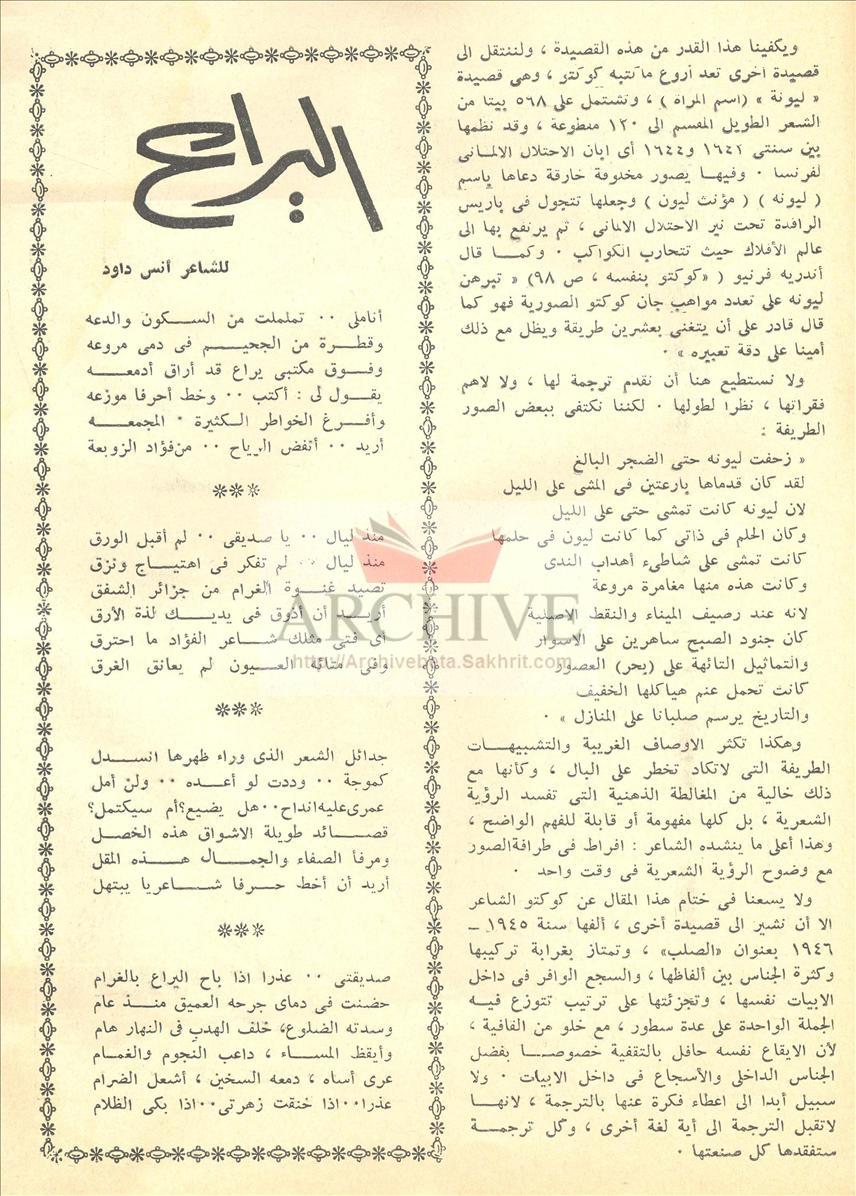 ويكفينا هذا القدر من هذه القصيدة ، ولننتقل الى
قصيدة أخرى تعد أروع ما كتبه كوكتو ، وهى قصيدة
« ليونة » (اسم المرأة ) ، وتشتمل على ٥٦٨ بيتا من
الشعر الطويل المقسم الى ١٢٠ مقطوعة ، وقد نظمها
بين سنتى ١٩٤٢ و١٩٤٤ أى ابان الاحتلال الالمانى
لفرنسا ٠ وفيهـا يصور مخلوقة خارقة دعاها باسم
( ليونه ) ( مؤنث ليون ) وجعلها تتجول فى باريس
الراقدة تحت نير الاحتلال الالمانى ، ثم يرتفع بها الى
عالم الأفلاك حيث تتحارب الكواكب ٠ وكمـا قال
أندريه فرنيو ( «كوكتو بنفسه ، ص ٩٨) « تبرهن
ليونه على تعدد مواهب جان كوكتو الصورية فهو كما
قال قادر على أن يتغنى بعشرين طريقة ويظل مع ذلك
أمينا على دقة تعبيره » ٠
ولا نستطيع هنا أن نقدم ترجمة لها ، ولا لاهم
فقراتها ، نظرا لطولها ٠ لكننا نكتفى ببعض الصور
الطريفة :
« زحفت ليونه حتى الضجر البالغ
لقد كان قدماها بارعتين فى المشى على الليل
لان ليونه كانت تمشى حتى على الليل
وكان الحلم فى ذاتى كما كانت ليون فى حلمها
كانت تمشى على شاطىء أهداب الندى
وكانت هذه منها مغامرة مروعة
لانه عند رصيف الميناء والنقط الاصلية
كان جنود الصبح ساهرين على الاسوار
والتماثيل التائهة على (بحر) العصور
كانت تحمل عنم هياكلها الخفيف
والتاريخ يرسم صلبانا على المنازل » ٠
وهكذا تكثر الاوصاف الغريبة والتشبيهـات
الطريفة التى لاتكاد تخطر على البال ، وكأنها مع
ذلك خالية من المغالطة الذهنية التى تفسد الرؤية
الشعرية ، بل كلها مفهومة أو قابلة للفهم الواضح ،
وهذا أعلى ما ينشده الشاعر : افراط فى طرافةالصور
مع وضوح الرؤية الشعرية فى وقت واحد ٠
ولا يسعنا فى ختام هذا المقال عن كوكتو الشاعر
الا أن نشير الى قصيدة أخرى ، ألفها سنة ١٩٤٥ ــ
١٩٤٦ بعنوان «الصلب» ، وتمتاز بغرابة تركيبها
وكثرة الجناس بين ألفاظها ، والسجع الوافر فى داخل
الابيات نفسها ، وتجزئتها على ترتيب تتوزع فيـه
الجملة الواحدة على عدة سطور ، مع خلو من القافية ،
لأن الايقاع نفسه حافل بالتقفية خصوصـا بفضل
الجناس الداخلى والأسجاع فى داخل الابيات ٠ ولا
سبيل أبدا الى اعطاء فكرة عنها بالترجمة ، لانهـا
لاتقبل الترجمة الى أية لغة أخرى ، وكل ترجمـة
ستفقدها كل صنعتها ٠
اليراع
للشاعر أنس داود
أناملى ٠٠ تململت من السـكون والدعه
وقطـرة من الجحيـم فى دمى مروعه
وفـوق مكتبى يراع قد أراق أدمعـه
يقـول لى : أكتب ٠٠ وخط أحرفا موزعه
وأفـرغ الخواطر الـكثيرة ٠ المجمعـه
أريد ٠٠ أنفض الرياح ٠٠ من فؤاد الزوبعة
***
منذ ليال ٠٠ يا صديقى ٠٠ لم أقبل الورق
منذ ليال ٠٠ لم تفكر فى اهتيـاج ونزق
تصيد غنـوة الغرام من جزائر الشفق
أريـد أن أذوق فى يديـك لذة الأرق
أى فتى مثلك شـاعر الفؤاد ما احترق
وفى متاهة العـيون لم يعانق الغرق
***
جدائل الشعر الذى وراء ظهرها انسـدل
كموجة ٠٠ وددت لو أعـده ٠٠ ولن أمل
عمرى عليه انداح٠٠هل يضيع؟أم سيكتمل؟
قصـائد طويلة الاشواق هذه الخصل
ومرفأ الصفاء والجمـال هـذه المقل
أريد أن أخط حـرفا شـاعريا يبتهل
***
صديقتى ٠٠ عذرا اذا باح اليراع بالغرام
حضنت فى دماى جرحه العميق منـذ عام
وسدته الضلوع، خلف الهدب فى النهار هام
وأيقظ المسـاء ، داعب النجوم والغمـام
عرى أساه ، دمعه السخين ، أشعل الضرام
عذرا٠٠اذا خنقت زهرتى٠٠اذا بكى الظلام
ARCHIVE
http://Archivebeta.Sakhrit.com